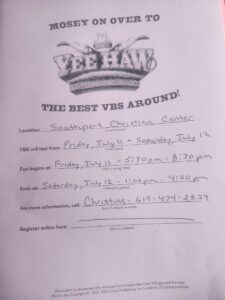 MOSEY ON OVER TO
YEE HAW
THE BEST VBS AROUND!
Location: Southport Christian Center
VBS will last from: Friday, July 11 - Saturday, July 12
Fun begins at: Friday, July 11 - 5:30pm - 8:30pm
Ends at: Saturday, July 12 - 1:00pm - 4:00pm
For more information, call: Christina - 619-474-2834
Register online here: